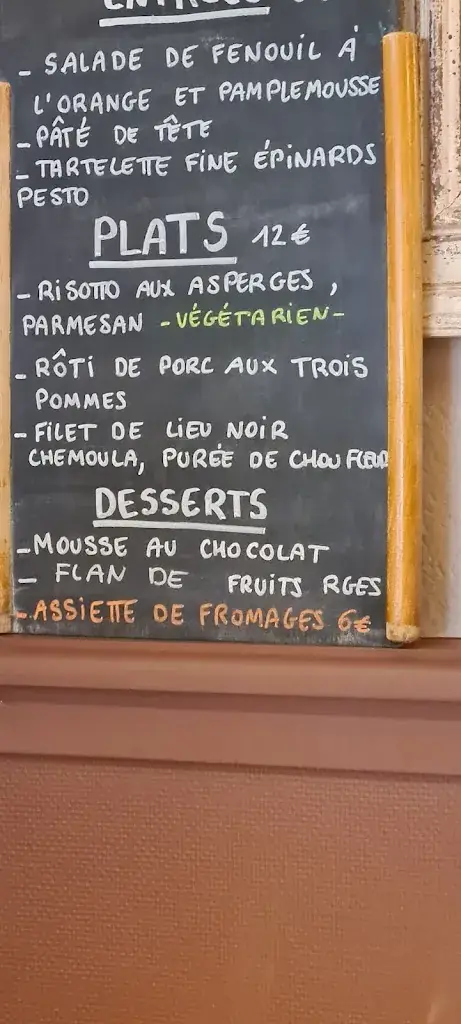 - SALADE DE FENOUIL À
L'ORANGE ET PAMPLEMOUSSE
- PÂTÉ DE TÊTE
- TARTELETTE FINE ÉPINARDS
PESTO
PLATS 12€
- RISOTTO AUX ASPERGES,
PARMESAN - VÉGÉTARIEN -
- RÔTI DE PORC AUX TROIS
POMMES
- FILET DE LIEU NOIR
CHEMOULA, PURÉE DE CHOU FLEUR
DESSERTS
- MOUSSE AU CHOCOLAT
- FLAN DE FRUITS RGES
- ASSIETTE DE FROMAGES 6€